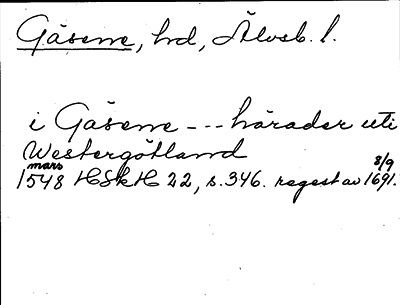 Gäsene, hd, Älvsb. l.
i Gåsene --- härader uti
Westergötland
mars 8/9
1548 HSkH 22, s. 346. regest av 1691.